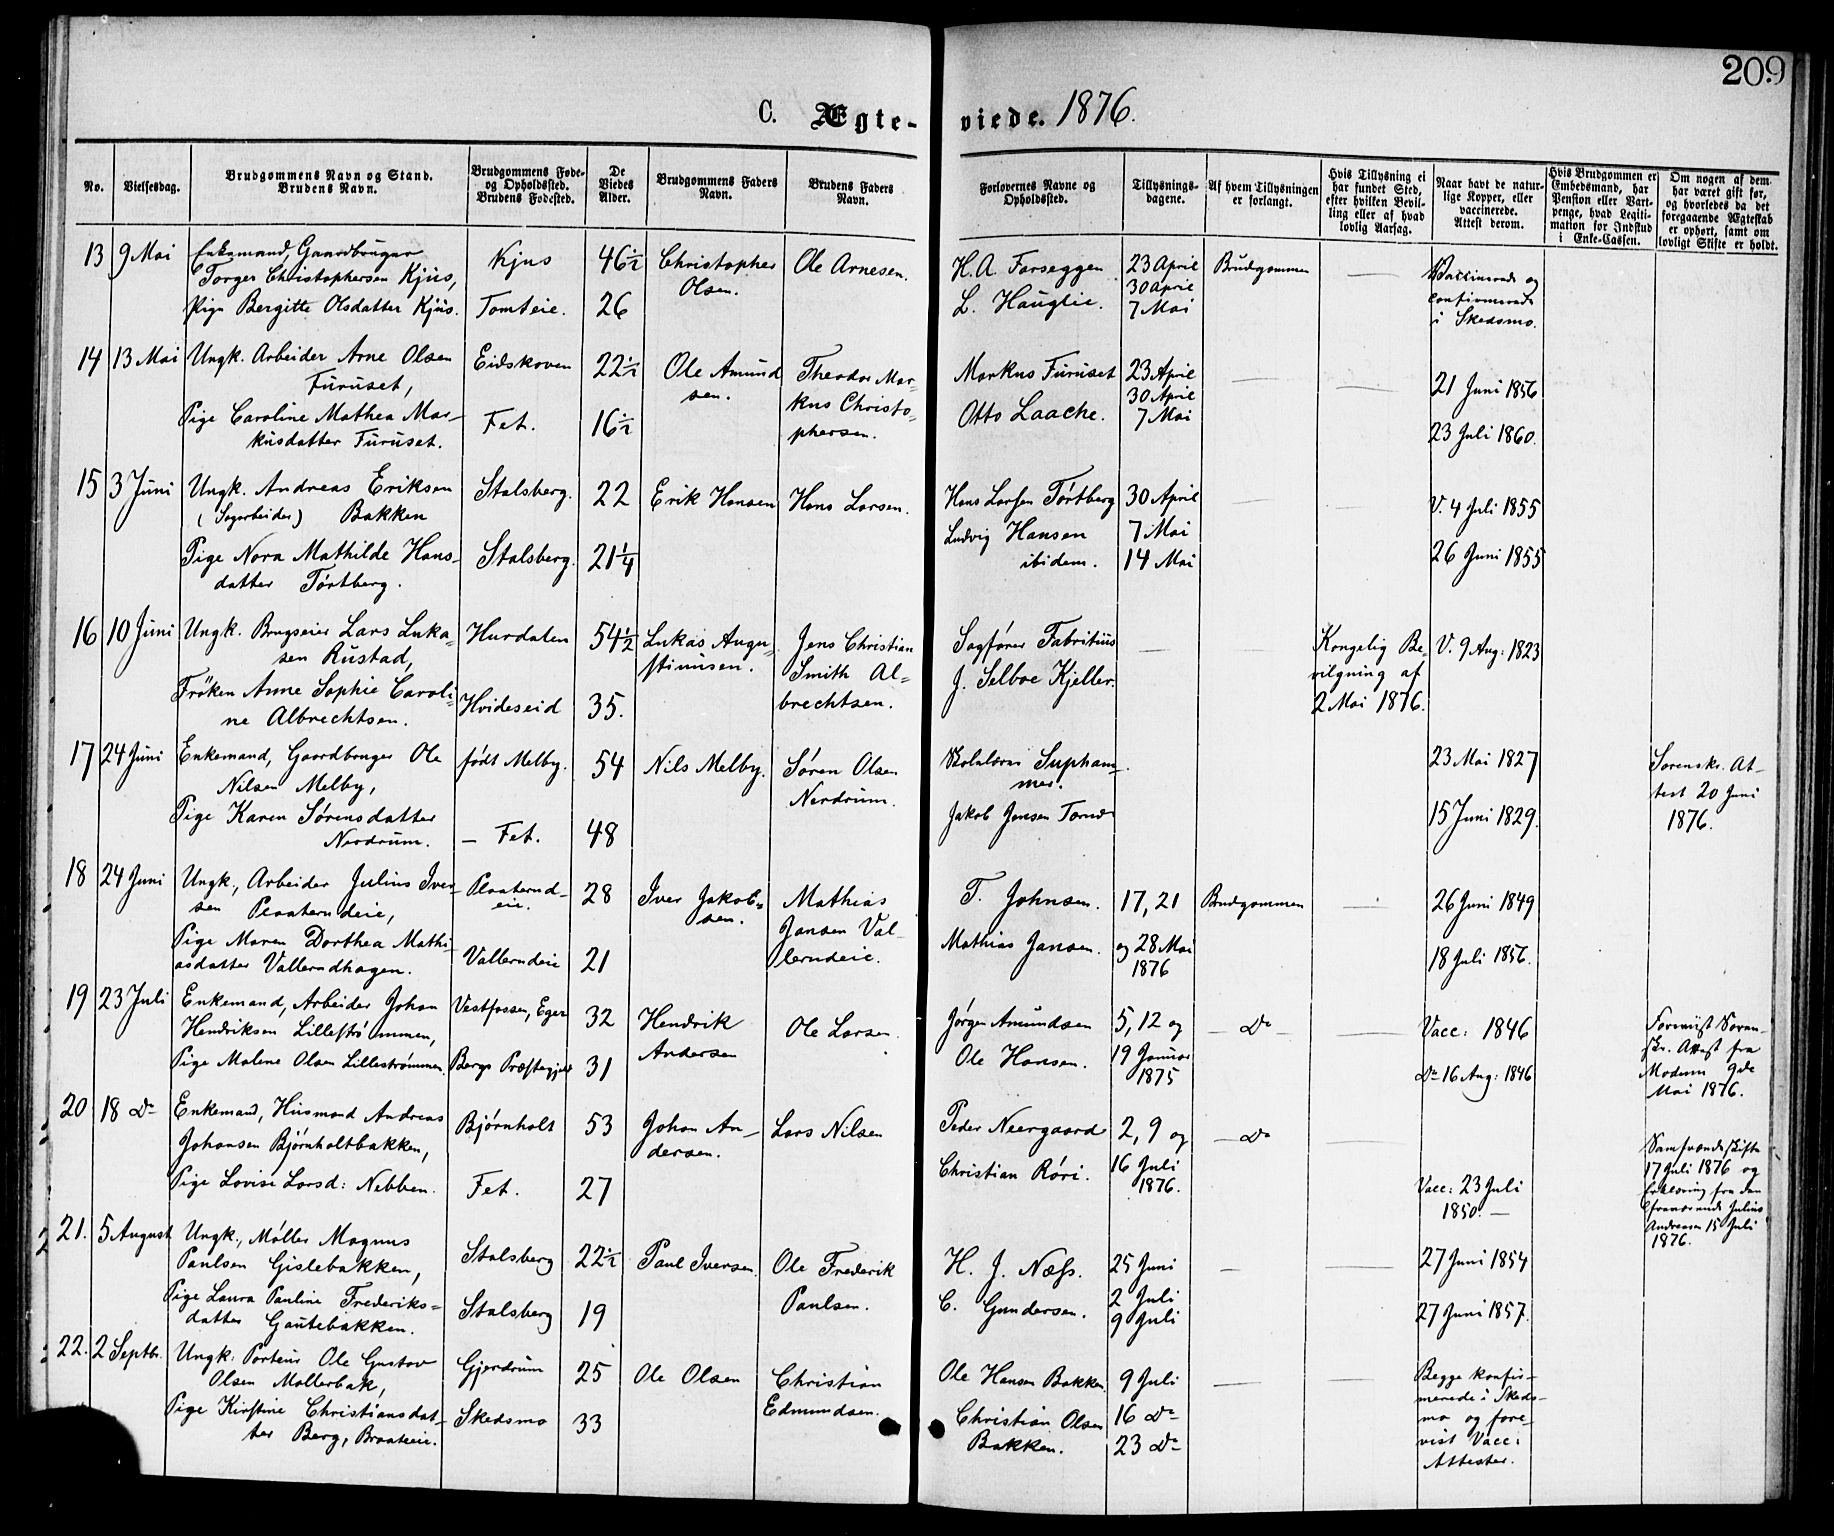 209
C. Ægte-viede. 1876.
No.
Vielsesdag.
Brudgommens Navn og Stand.
Brudens Navn.
Brudgommens Føde-
og Opholdssted.
Brudens Fødested.
De
Viedes
Alder.
Brudgommens Faders
Navn.
Brudens Faders
Navn.
Forlovernes Navne og
Opholdssted.
Tillysnings-
dagene.
Af hvem Tillysningen
er forlangt.
Hvis Tillysning ei
har fundet Sted,
efter hvilken Bevil-
ling eller af hvad
lovlig Aarsag.
Naar havt de natur-
lige Kopper, eller
vaccinerede.
Attest derom.
Hvis Brudgommen er
Embedsmand, har
Pension eller Vart-
penge, hvad Legiti-
mation for Indskud
i Enke-Cassen.
Om nogen af dem
har været gift før,
og hvorledes da det
foregaaende Ægteskab
er ophørt, samt om
lovligt Skifte er holdt.
13 9 Mai
Enkemand, Gaardbruger
Torger Christophersen Kjus,
Pige Bergitte Olsdatter Kjus.
Kjus
Tomteie.
46½
26
Christopher
Olsen.
Ole Arnesen.
H. A. Farseggen
L. Hauglie.
23 April
30 April
7 Mai
Brudgommen
Vaccinerede og
confirmerede
i Skedsmo.
14 13 Mai
Ungk. Arbeider Arne Olsen
Furuset,
Pige Caroline Mathea Mar-
kusdatter Furuset.
Eidskoven
Fet.
22½
16½
Ole Amund
sen.
Theodor Mar-
kus Christo-
phersen.
Markus Furuset
Otto Laache.
23 April
30 April
7 Mai
21 Juni 1856
23 Juli 1860.
15 3 Juni
Ungk. Andreas Eriksen
(Sagarbeider) Bakken
Pige Nora Mathilde Hans-
datter Tørtberg.
Stalsberg.
Stalsberg.
22
21¼
Erik Hansen
Hans Larsen.
Hans Larsen Tørtberg
Ludvig Hansen
ibidem.
30 April
7 Mai
14 Mai
V. 4 Juli 1855
26 Juni 1855
16 10 Juni
Ungk. Brugseier Lars Luka-
sen Rustad,
Frøken Anne Sophie Caroli-
ne Albrechtsen.
Hurdalen
Hvideseid
54½
35.
Lukas Augu-
stinusen.
Jens Christian
Smith Al-
brechtsen.
Sagfører Fabritius
J. Selboe Kjeller.
Kongelig Be-
vilgning af
2 Mai 1876.
V. 9 Aug: 1823
17 24 Juni
Enkemand, Gaardbruger Ole
Nilsen Melby,
Pige Karen Sørensdatter
Nerdrum.
født Melby.
— Fet.
54
48
Nils Melby.
Søren Olsen
Nerdrum.
Skolelærer Supham-
mer.
Jakob Jensen
23 Mai 1827
15 Juni 1829.
Sorenskr. At-
test 20 Juni
1876.
18 24 Juni
Ungk., Arbeider Julius Iver-
sen Peaaterudeie,
Pige Maren Dorthea Mathi-
asdatter Vallerudhagen.
Valleruddeie
28
21
Iver Jakob-
sen.
Mathias
Jansen Val-
lerudeie.
T. Johnsen.
Mathias Jansen.
17, 21
og 28 Mai
1876
Brudgommen
26 Juni 1849
18 Juli 1856.
19 23 Juli
Enkemand, Arbeider Johan
Hendriksen Lillestrømmen,
Pige Malene Olsen Lillestrømmen.
Vestfossen, Eger
Bergs Præstegjeld
32
31
Hendrik
Andersen
Ole Larsen.
Jørgen Amundsen
Ole Hansen.
5, 12 og
19 Januar
1875
— Do —
Vacc: 1846
Do 16 Aug: 1846
Forevist Soren-
skr. Attest fra
Modum 9de
Mai 1876.
20 18 Do
Enkemand, Husmand Andreas
Johansen Bjørnholtbakken,
Pige Lovise Larsd: Nebben.
Bjørnholt
Fet.
53
27
Johan An-
dersen.
Lars Nilsen
Peder Neergaard
Christian Røri.
2, 9 og
16 Juli
1876.
— Do
Vacc: 23 Juli
1850. —
Samfrændeskifte
17 Juli 1876 og
Erklæring fra den
fraværende Julius
Andreasen 15 Juli
1876.
21. 5 August
Ungk., Møller Magnus
Paulsen Gislebakken,
Pige Laura Pauline Frederiks-
datter Gautebakken.
Stalsberg
Stalsberg
22½
19
Paul Iversen.
Ole Frederik
Paulsen.
H. J. Næss.
C. Gundersen.
25 Juni
2 Juli
9 Juli
27 Juni 1854
27 Juni 1857.
22. 2 Septbr.
Ungk: Porteur Ole Gustav
Olsen Mollerbak,
Pige Kirstine Christiansdat-
ter Berg, Braateie.
Gjerdrum
Skedsmo
25
33
Ole Olsen
Christian
Edmundsen.
Ole Hansen Bakken
Christian Olsen
Bakken.
9 Juli
16 Do
23 Do
Begge konfir-
merede i Skeds-
mo og fore-
vist Vacc:
Attester.